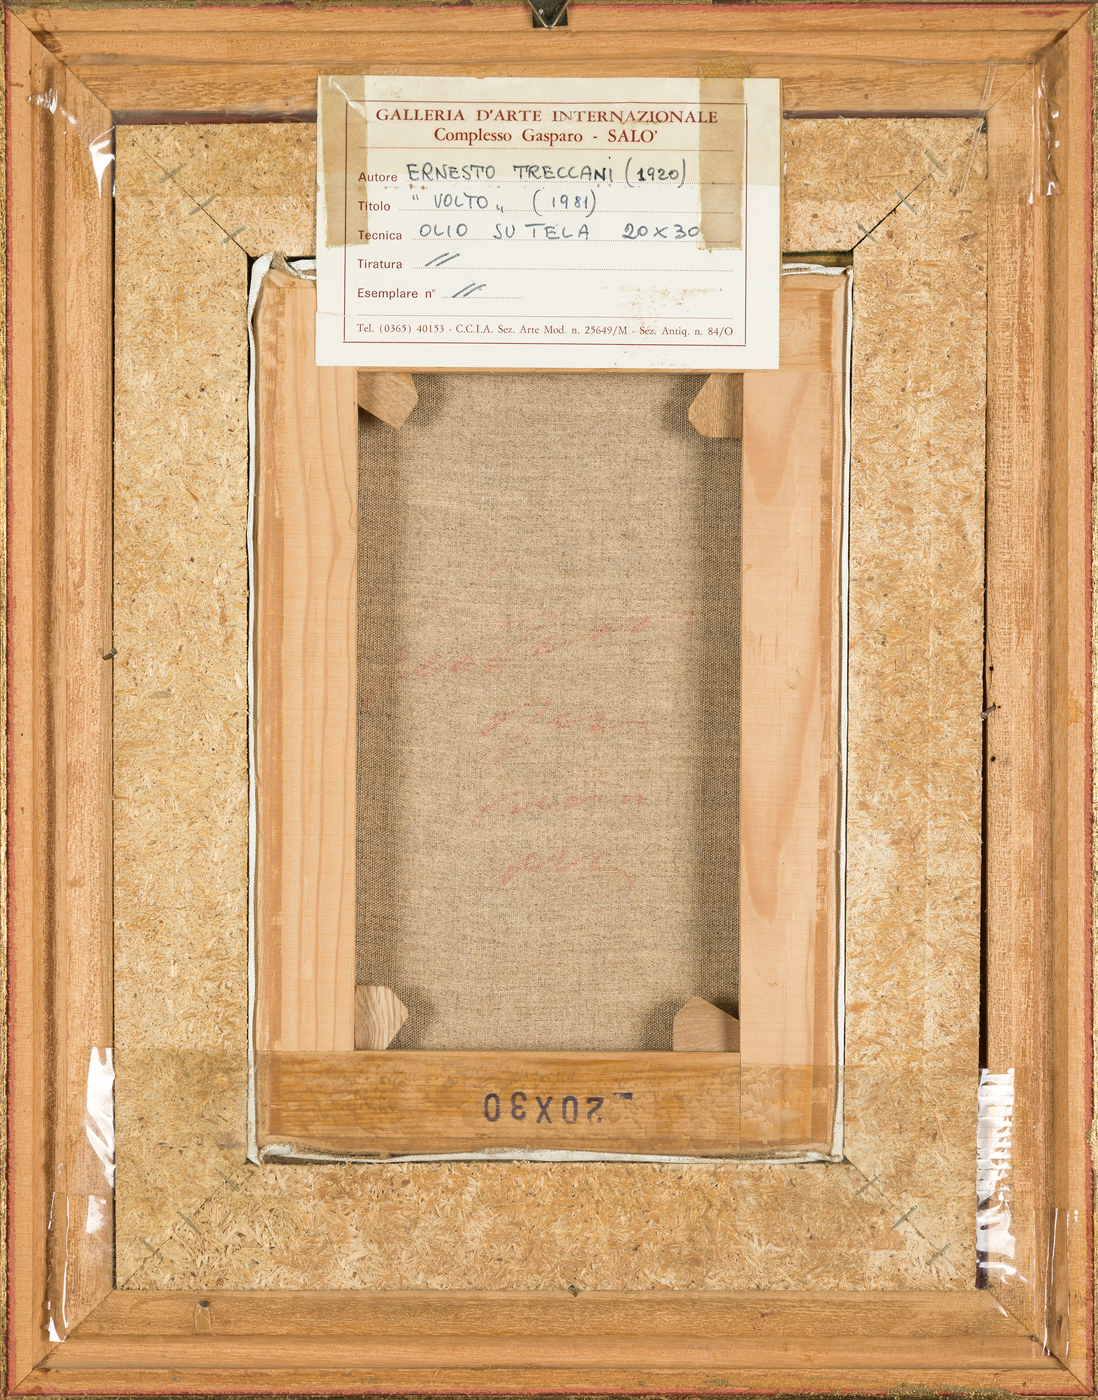 GALLERIA D'ARTE INTERNAZIONALE
Complesso Gasparo - SALO'
Autore ERNESTO TRECCANI (1920)
Titolo "VOLTO" (1981)
Tecnica OLIO SU TELA 20x30
Tiratura //
Esemplare n° //
Tel. (0365) 40153 - C.C.I.A. Sez. Arte Mod. n. 25649/M - Sez. Antiq. n. 84/O
20X30